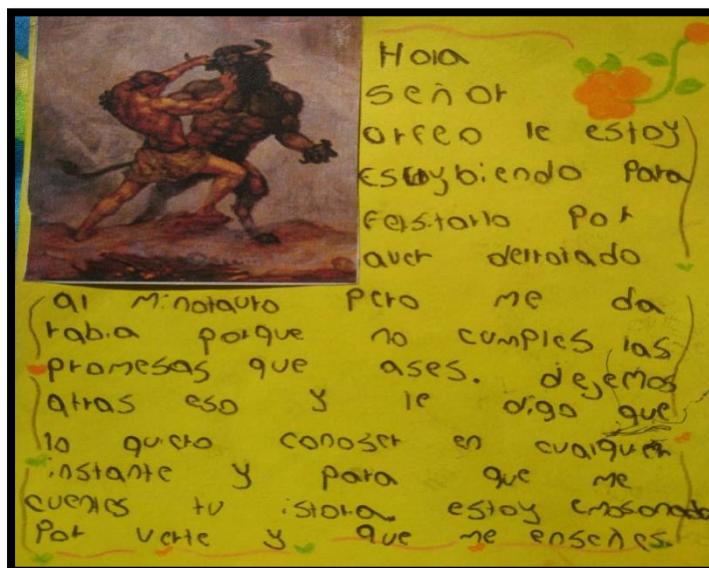 Hola
señor
orfeo le estoy
escribiendo para
felsitarlo por
aver derrotado
al minotauro pero me da
rabia porque no cumples las
promesas que ases. dejemos
atras eso y le digo que
lo quiero conoser en cualquier
instante y para que me
cuentes tu istora estoy emosonado
por verte y que me enseñes